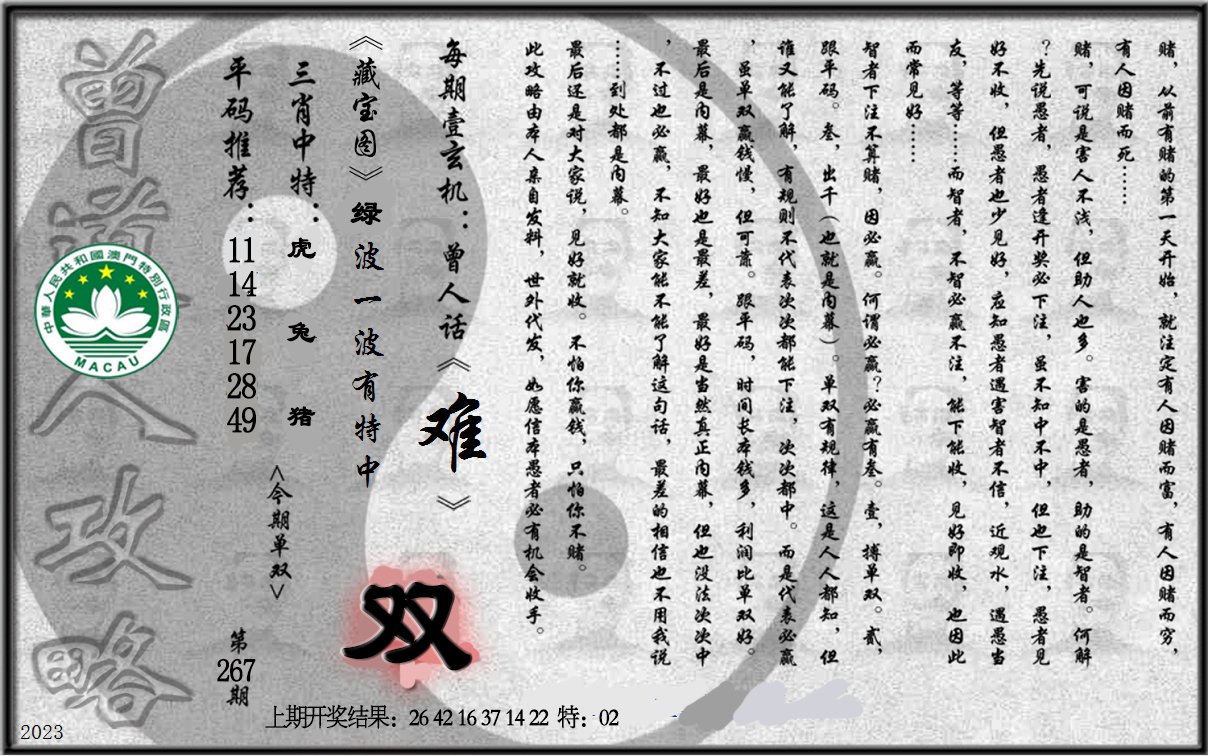 赌，从前有赌的第一天开始，就注定有人因赌而富，有人因赌而穷，
有人因赌而死……
赌，可说是害人不浅，但助人也多。害的是愚者，助的是智者。何解
？先说愚者，愚者逢开奖必下注，虽不知中不中，但也下注，愚者见
好不收，但愚者也少见好，应知愚者遇害智者不信，近观水，遇愚当
友，等等……而智者，不智必赢不注，能下能收，见好即收，也因此
而常见好……
智者下注不算赌，因必赢。何谓必赢？必赢有叁。壹，搏单双。贰，
跟平码。叁，出千（也就是内幕）。单双有规律，这是人人都知，但
谁又能了解，有规则不代表次次都能下注，次次都中。而是代表必赢
，虽单双赢钱慢，但可靠。跟平码，时间长本钱多，利润比单双好。
最后是内幕，最好也是最差，最好是当然真正内幕，但也没法次次中
，不过也必赢，不知大家能不能了解这句话，最差的相信也不用我说
……到处都是内幕。
最后还是对大家说，见好就收。不怕你赢钱，只怕你不赌。
此攻略由本人亲自发料，世外代发，如愿信本愚者必有机会收手。
每期壹玄机：曾人话《难》
《藏宝图》绿波一波有特中
双
三肖中特：虎 兔 猪
<今期单双>
平码推荐：11 14 23 17 28 49
第267期
曾道人攻略
中華人民共和國澳門特別行政區
MACAU
上期开奖结果：26 42 16 37 14 22 特：02
2023